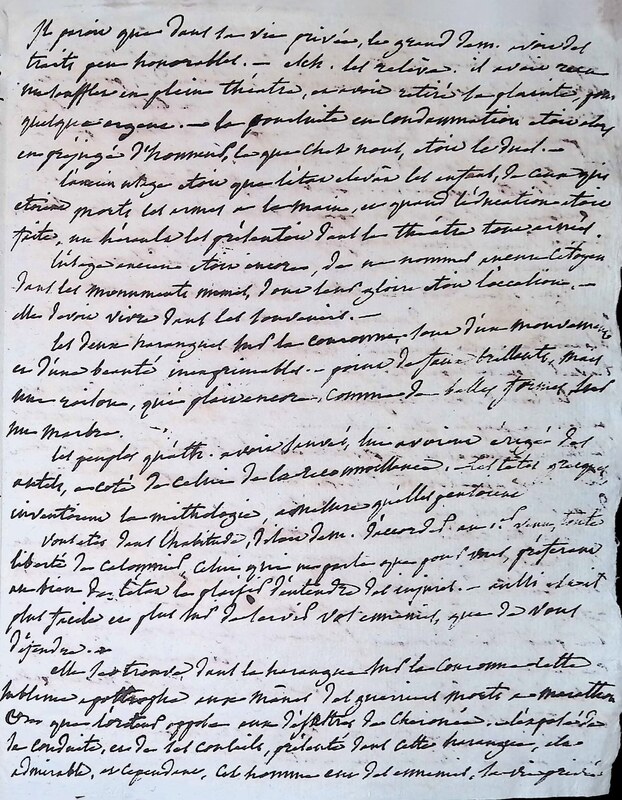 Il paroit que dans la vie privée, le grand dem. avoit des
traits peu honorables. — esch. les relève. il avoit recu
un soufflet en plein théatre, et avoit retiré sa plainte, pour
quelque argent. — la poursuite en condamnation etoit alors
en préjugé d'honneur, ce que chez nous, etoit le duel. —
l'ancien usage etoit que l'état elevât les enfants, de ceux qui
etoient morts les armes a la main, et quand l'éducation etoit
faite, un héraut les présentoit dans le théatre tous armés.
l'usage ancien etoit encore, de ne nommer aucun citoyen
dans les monuments mêmes, dont leur gloire etoit l'occasion. —
elle devoit vivre dans les souvenirs. —
les deux harangues sur la couronne, sont d'un mouvement
et d'une beauté inexprimables — point de faux brillants, mais
une raison, qui plait encore, comme de belles formes sur
un marbre.
les peuples qu'ath. avoit sauvés, lui avoient érigé des
autels, a coté de celui de la reconnoissance. — les têtes grecques,
inventoient la mithologie a mesure qu'elles pensoient
vous etes dans l'habitude, disoit dem. d'accorder au toute
liberté de calomnier, celui qui ne parle que pour vous, préférant
au bien de l'état le plaisir d'entendre des injures. — aussi est il
plus facile et plus sur de servir vos ennemis, que de vous
défendre. —
elle se trouve dans la harangue sur la couronne cette
sublime apostrophe aux mânes des guerriers morts a marathon
que l'orateur oppose aux désastres de Cheronée. — l'exposé de
la conduite, et de ses conseils, présenté dans cette harangue, est
admirable, et cependant, cet homme eut des ennemis, sa vie privée